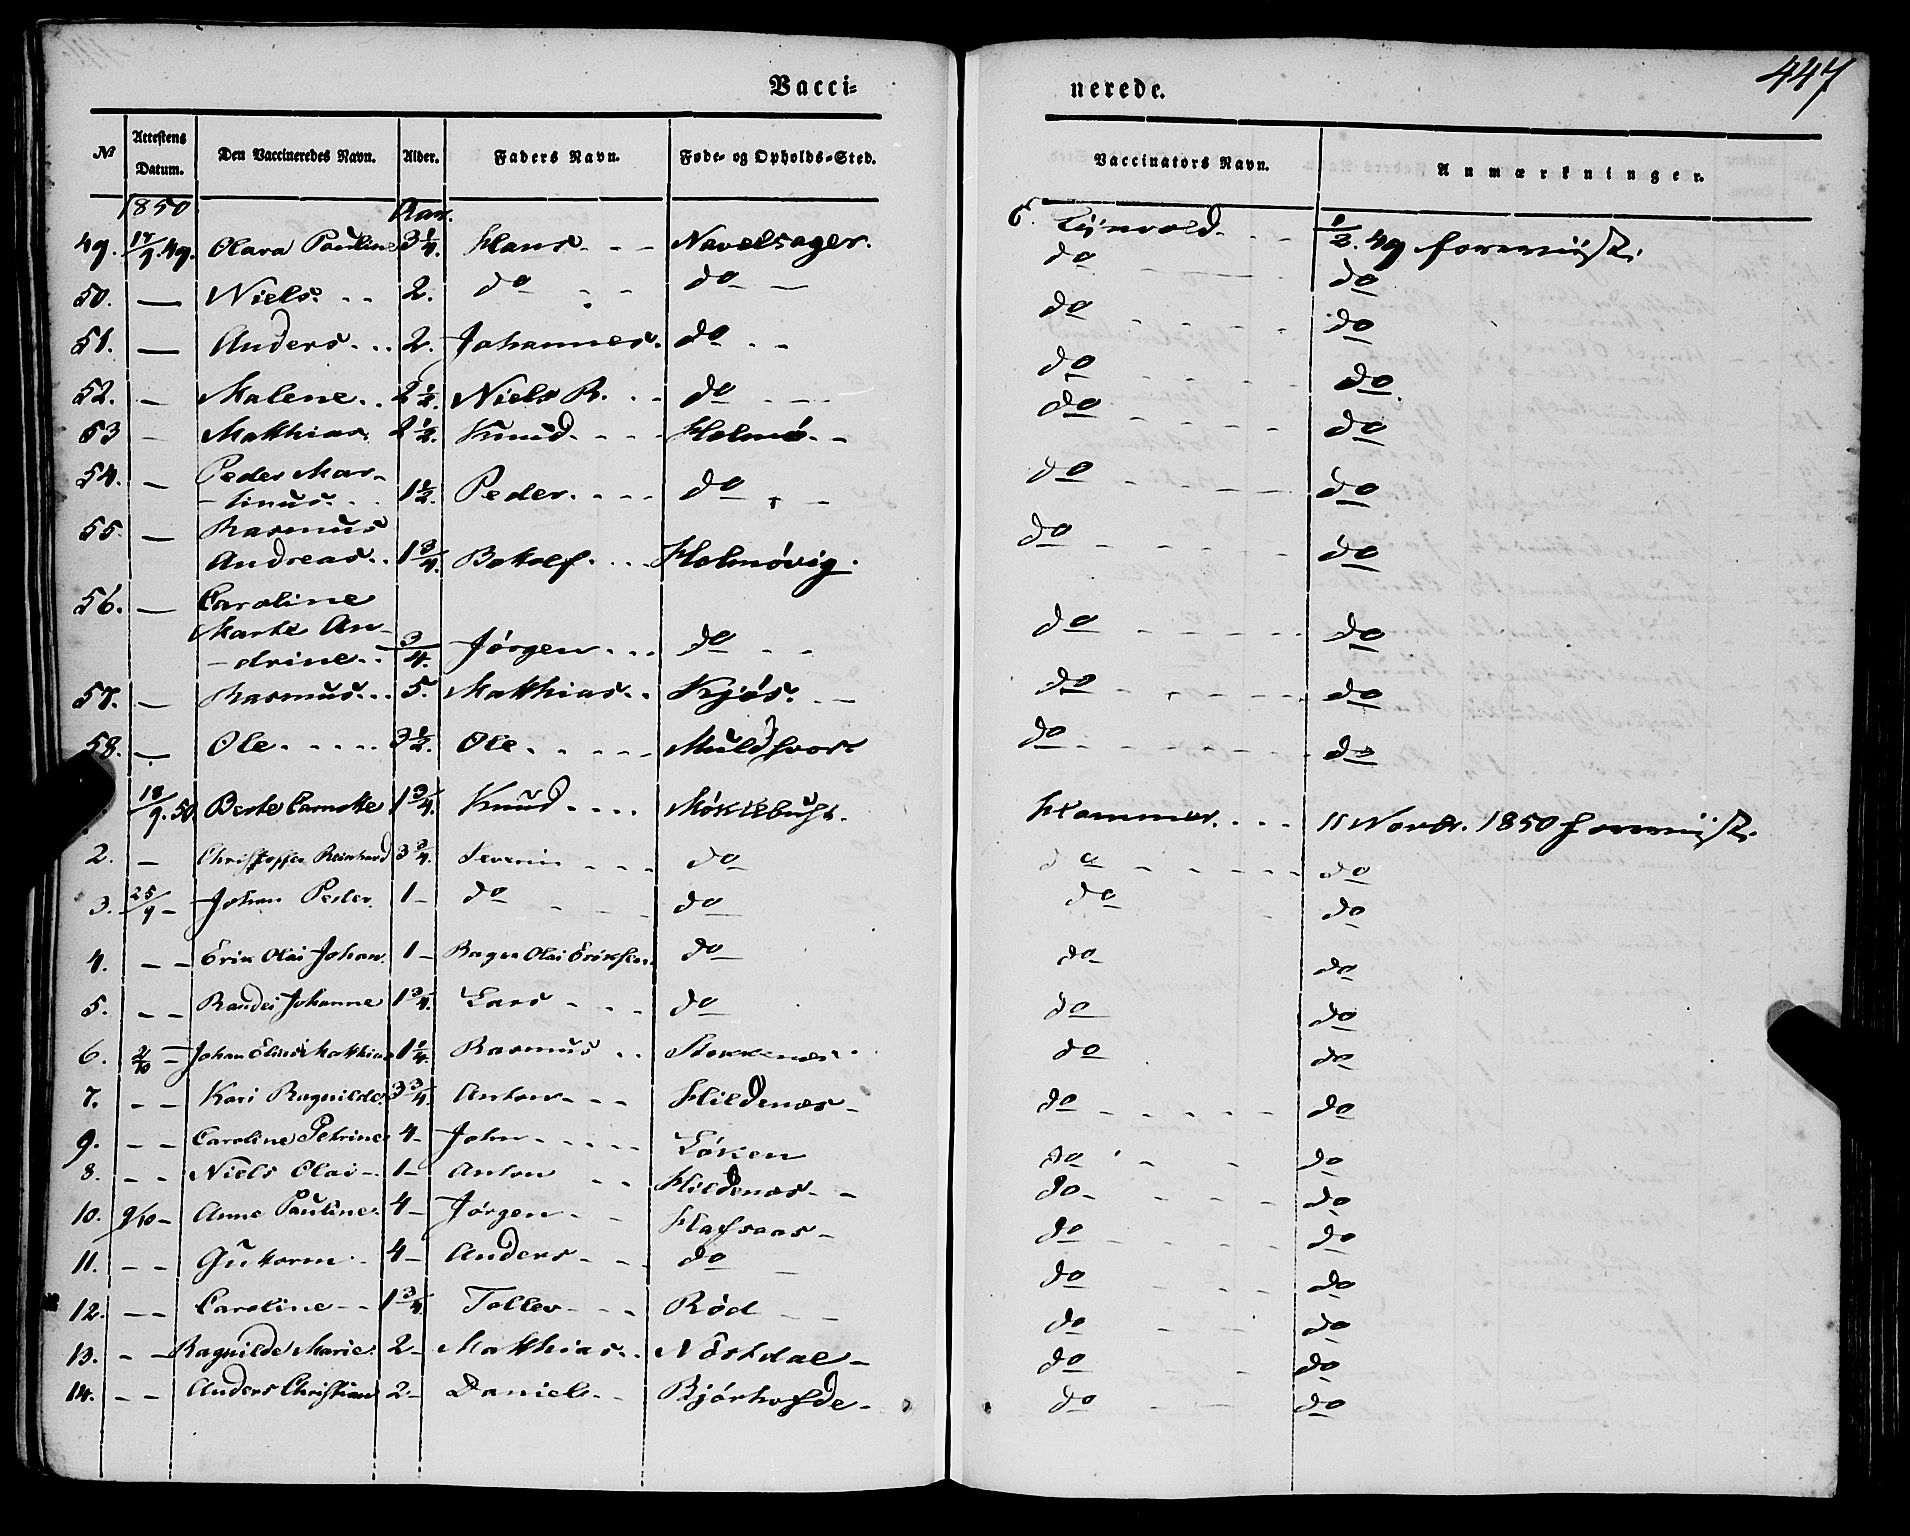 447
Vacci- nerede.
№ Attestens Datum. Den Vaccineredes Navn. Alder. Faders Navn. Føde- og Opholds-Sted. Vaccinators Navn. Anmærkninger.
1850. Aar.
49. 17/9.49. Olava Pauline 3 1/4. Hans - - Navelsager. 1/2.49 foreviist.
50. — Niels. - - 2. do - - do — do do
51. — Anders. - - 2. Johannes. do - - do do
52. — Malene. - 2 1/2. Niels R. - - do - - do do
53 — Matthias. 2 1/2. Knud. - - - Holmø. - do do
54. — Peder Mar-
-tinus. - - 1 1/2. Peder. - - - do - do do
55. — Rasmus
Andreas. - 1 3/4. Botolf. - - - Holmøvig. do do
56. — Caroline
Marte An-
-drine. - 3/4. Jørgen - - - do - - do do
57. — Rasmus. - - 5. Matthias. - Kjøs. - - do do
58. — Ole. - - - - 3 1/2. Ole. - - - - do do
18/9.50. 1 3/4. Knud. - - - Hammer. - - - 11 Novbr. 1850 foreviist.
2. — Christoffer Reinhard 3 3/4. Severin - - - do do do
3. 25/9 - Johan Peder. 1 - do - - - do do do
4. - - Erik Olai Johan. 1 - Olai Eriksen. do do do
5. - - Johanne 1 3/4. Lars - - - do do do
6. 2/10 - Johan Matthias 1 1/4. Rasmus - - do do
7. - - Kari Ragnilde. 3 3/4. Anton - - - Hildenæs - do do
9. - - Caroline Petrine 4 - John - - - - Løken do do
8. - - Niels Olai - 1 - Anton - - Hildenæs - - do do
10. 9/10 - Anne Pauline. 4 - Jørgen - - do do
11. - - Gutorm - 4 - Anders - - - do - do do
12. - - Caroline - - 1 3/4 Tollev - - - Rød - - do do
13. - - Ragnilde Marie. 2 - Matthias. - Nöstdal - do do
14. - - Anders Christian 2. - Daniel. - - do do